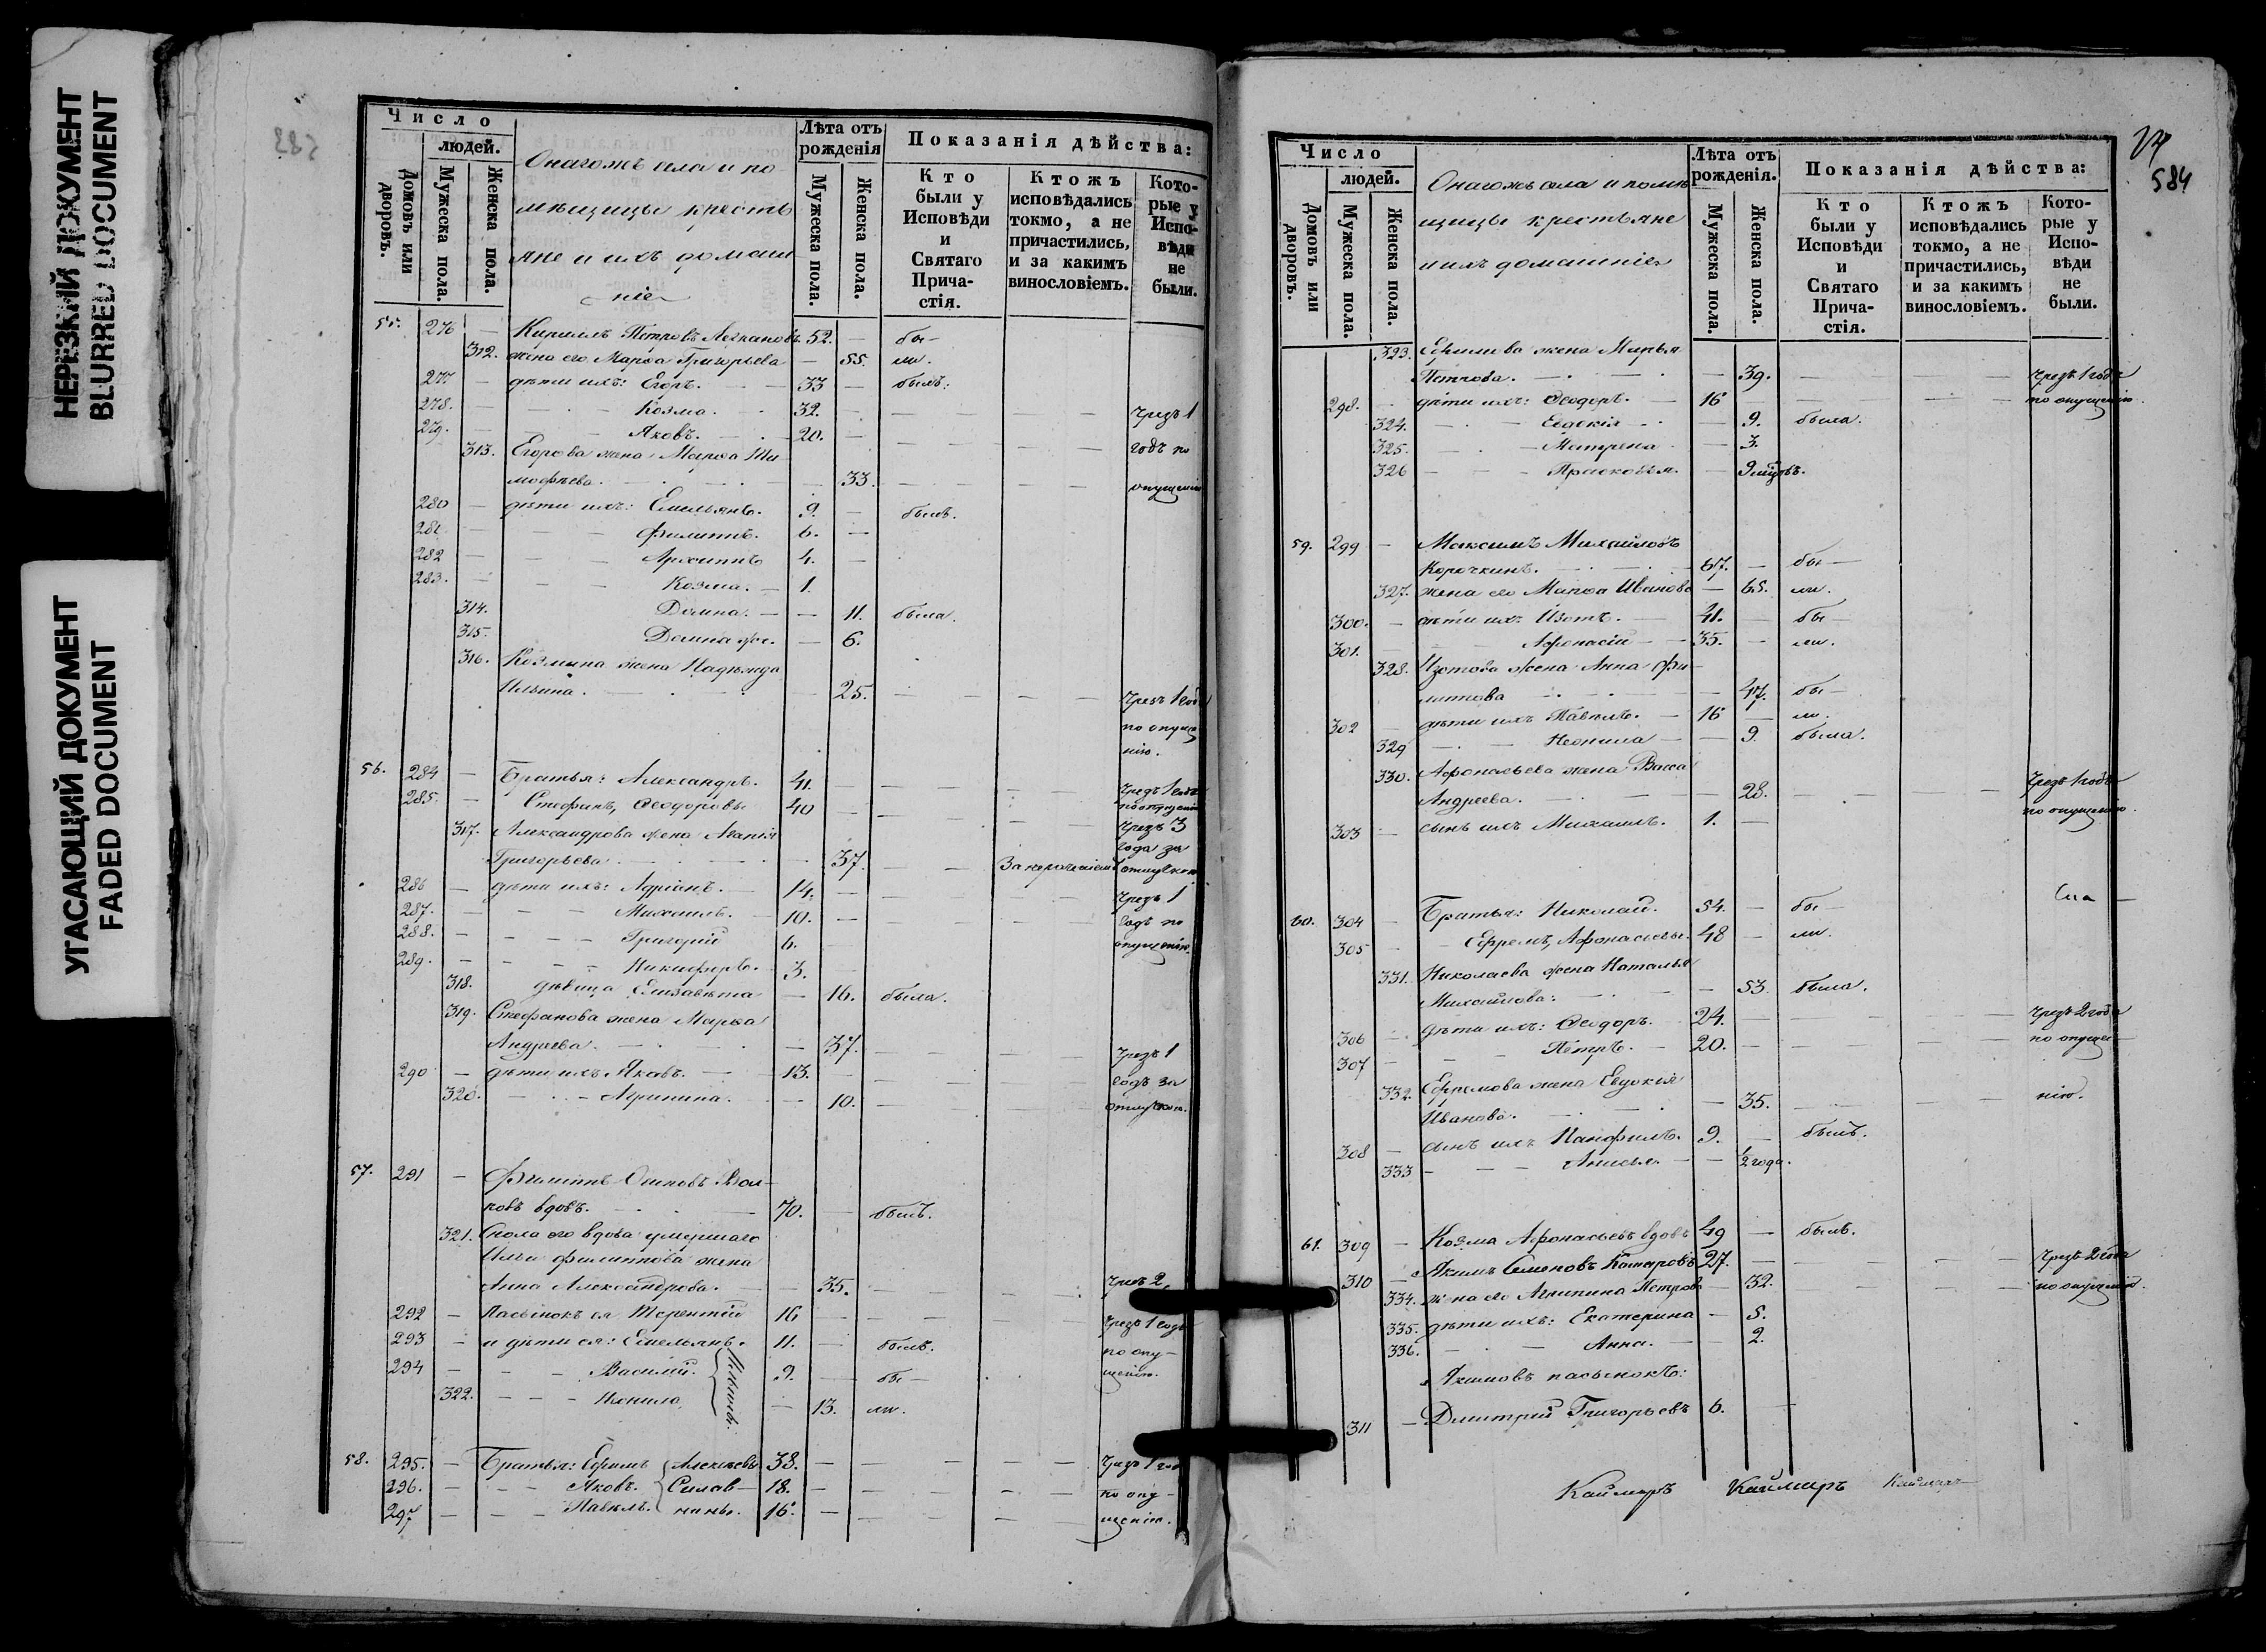 НЕРЕЗКИЙ ДОКУМЕНТ
BLURRED DOCUMENT
УГАСАЮЩИЙ ДОКУМЕНТ
FADED DOCUMENT
Число
людей.
Домовъ или дворовъ.
Мужеска пола.
Женска пола.
Онагожъ села и по
мѣщицы кресть
яне и ихъ домаш
ніе
Лѣта отъ рожденія
Мужеска пола.
Женска пола.
Показанія дѣйства:
Кто были у Исповѣди и Святаго Прича-стія.
Ктожъ исповѣдались токмо, а не причастились, и за какимъ винословіемъ.
Кото-рые у Испо-вѣди не были.
55. 276 — Кирилъ Петровъ 52. — бы-
312. жена его Марѳа Григорьева — 55. ли.
277 — дѣти ихъ: Егоръ. 33 — былъ.
278. — Козма. 32. — чрезъ 1
279. — Яковъ. 20. — годъ по
313. Егорова жена Марѳа Ти
моѳѣева. — 33. опущенію
280 — дѣти ихъ: Емельянъ. 9. — былъ.
281 — Филиппъ. 6. —
282 — Архиппъ 4. —
283. — Козма. 1.
314. Домна. — 11. была.
315. Домна же. — 6.
316. Козмина жена Надежда
Ильина. — 25. — чрезъ 1 годъ
по опуще
нію.
56. 284 — Братья: Александръ. 41. — чрезъ 1 годъ
285. — Стефанъ, Ѳеодоровы 40 — по опущенію
317. Александрова жена Агапія чрезъ 3
года за
Григорьева. — 37. — отлучкою
286 — дѣти ихъ: Адріанъ. 14. — чрезъ 1
287. — Михаилъ. 10. — годъ по
288. — Григорій 6. опущенію.
289. — Никифоръ. 3.
318. дѣвица Елизавета — 16. была.
319. Стефанова жена Марѳа
Андреева. — 37. — чрезъ 1
290 — дѣти ихъ Яковъ. 13. — годъ за
320. — Агрипина. — 10. — отлучкою.
57. 291 — Филиппъ Осиповъ Вол-
ковъ вдовъ. 70. — былъ.
321. Сноха его вдова умершаго
Ильи Филиппова жена
Анна Александрова. — 35. — чрезъ 2
292 — Пасынокъ ея Терентій 16 — чрезъ 1 годъ
293 — и дѣти ея: Емельянъ. 11. — былъ. по опу-
294 — Василій. 9. — бы- щенію.
Ильины.
322. — Неонила — 13. ли.
58. 295. — Братья: Ефимъ Алексѣевы 38. — чрезъ 1 годъ
296. — Яковъ. 18. — по опу-
297 — Павелъ. 16. — щенію.
584
Число
людей.
Домовъ или дворовъ.
Мужеска пола.
Женска пола.
Онагожъ села и помѣ
щицы крестьяне
и ихъ домашніе
Лѣта отъ рожденія.
Мужеска пола.
Женска пола.
Показанія дѣйства:
Кто были у Исповѣди и Святаго Прича-стія.
Ктожъ исповѣдались токмо, а не причастились, и за какимъ винословіемъ.
Кото-рые у Испо-вѣди не были.
323. Ефимова жена Марья
Петрова. — 39. — чрезъ 1 годъ
298. дѣти ихъ: Ѳеодоръ. — 16 — по опущенію.
324. — Евдокія — 9. была.
325. — Матрена — 3.
326 — Прасковья. — 9 мцовъ.
59. 299 — Максимъ Михайловъ
Корочкинъ. 67. — бы-
327. жена его Марѳа Иванова — 65. ли.
300. — дѣти ихъ Изотъ. — 41. — бы-
301. Афонасій — 35. — ли.
328. Изотова жена Анна Фи-
липова — 47. бы-
302 — дѣти ихъ Павелъ. — 16 — ли.
329 — Неонила — 9. была.
330. Афонасьева жена Васса
Андреева. — 28. — чрезъ 1 годъ
по опущенію.
303 — сынъ ихъ Михаилъ. 1. —
60. 304 — Братья: Николай. 54. — бы-
305 — Ефремъ, Афонасьевы. 48 — ли.
331. Николаева жена Наталья
Михайлова: — 53. была.
306 — дѣти ихъ: Ѳеодоръ. 24. — чрезъ 2 года
307 — Петръ. 20. — по опуще-
332. Ефремова жена Евдокія
Иванова. — 35. — нію.
308 — сынъ ихъ Панфилъ. 9. — былъ.
333 — Анисья. — ½ года.
61. 309 — Козма Афонасьевъ вдовъ 49 — былъ.
310 — Якимъ Семеновъ 27. — чрезъ 2 года
334. жена его Агрипина Петрова — 32. — по опущенію.
335. дѣти ихъ: Екатерина — 5.
336. — Анна. — 2.
Якимовъ пасынокъ:
311 — Дмитрій Григорьевъ 6. —